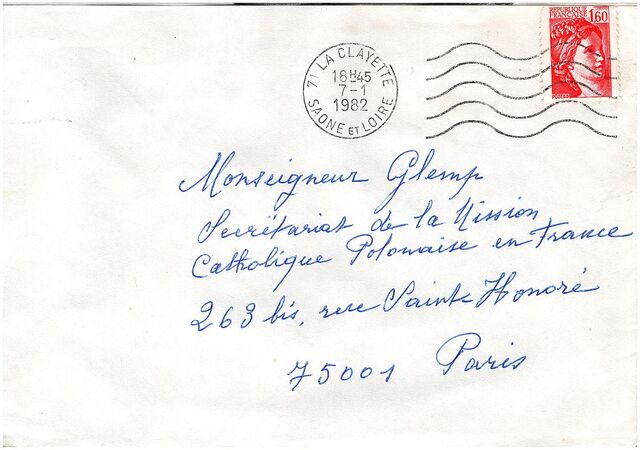 REPUBLIQUE
FRANÇAISE 1,60
POSTES
71 LA CLAYETTE
18H45
7-1
1982
SAONE ET LOIRE
Monseigneur Glemp
Secrétariat de la Mission
Catholique Polonaise en France
263 bis, rue Sainte Honoré
75001 Paris